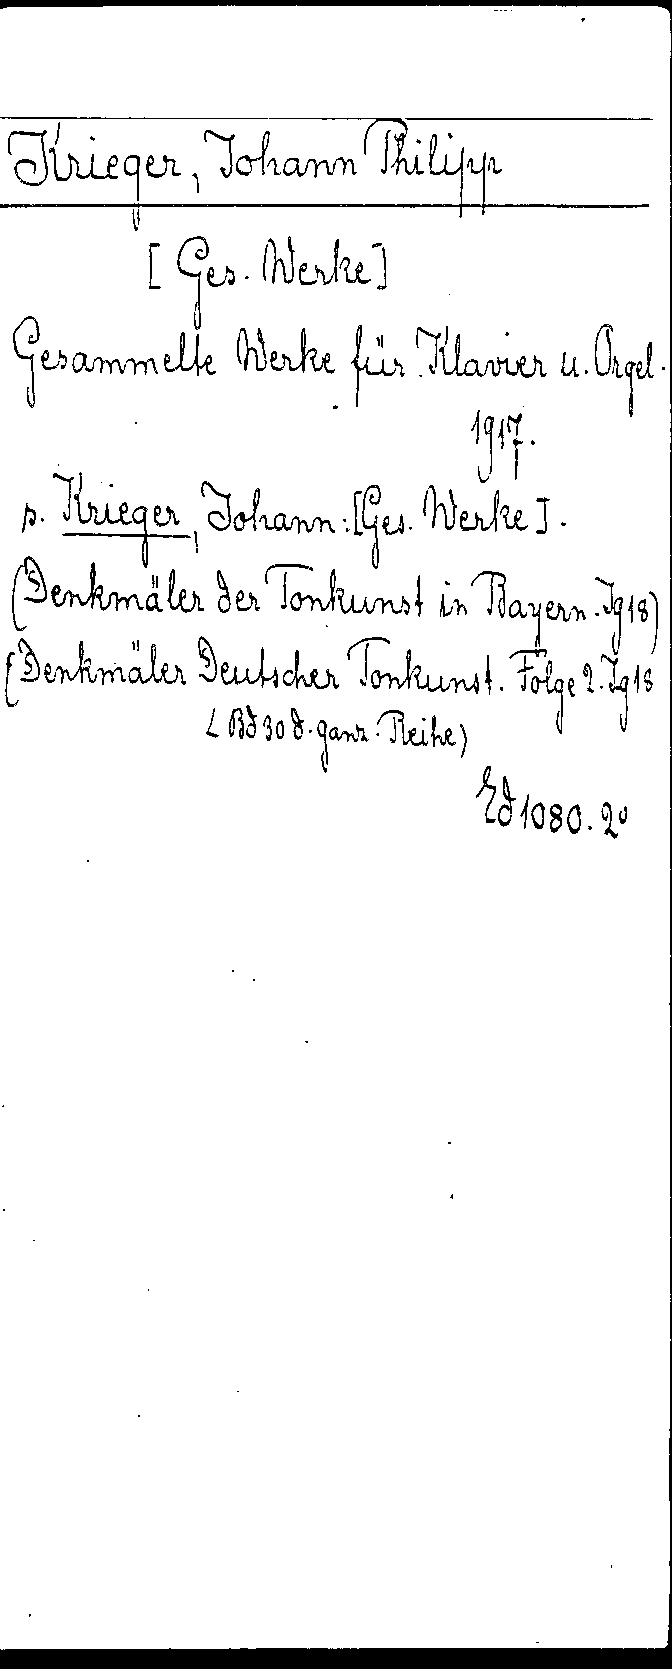 Krieger, Johann Philipp
[Ges. Werke]
Gesammelte Werke für Klavier u. Orgel.
1917.
s. Krieger, Johann: [Ges. Werke].
(Denkmäler der Tonkunst in Bayern. Jg 18)
(Denkmäler Deutscher Tonkunst. Folge 2. Jg 18
< Bd 30 d. ganz. Reihe)
Ed 1080. 2°